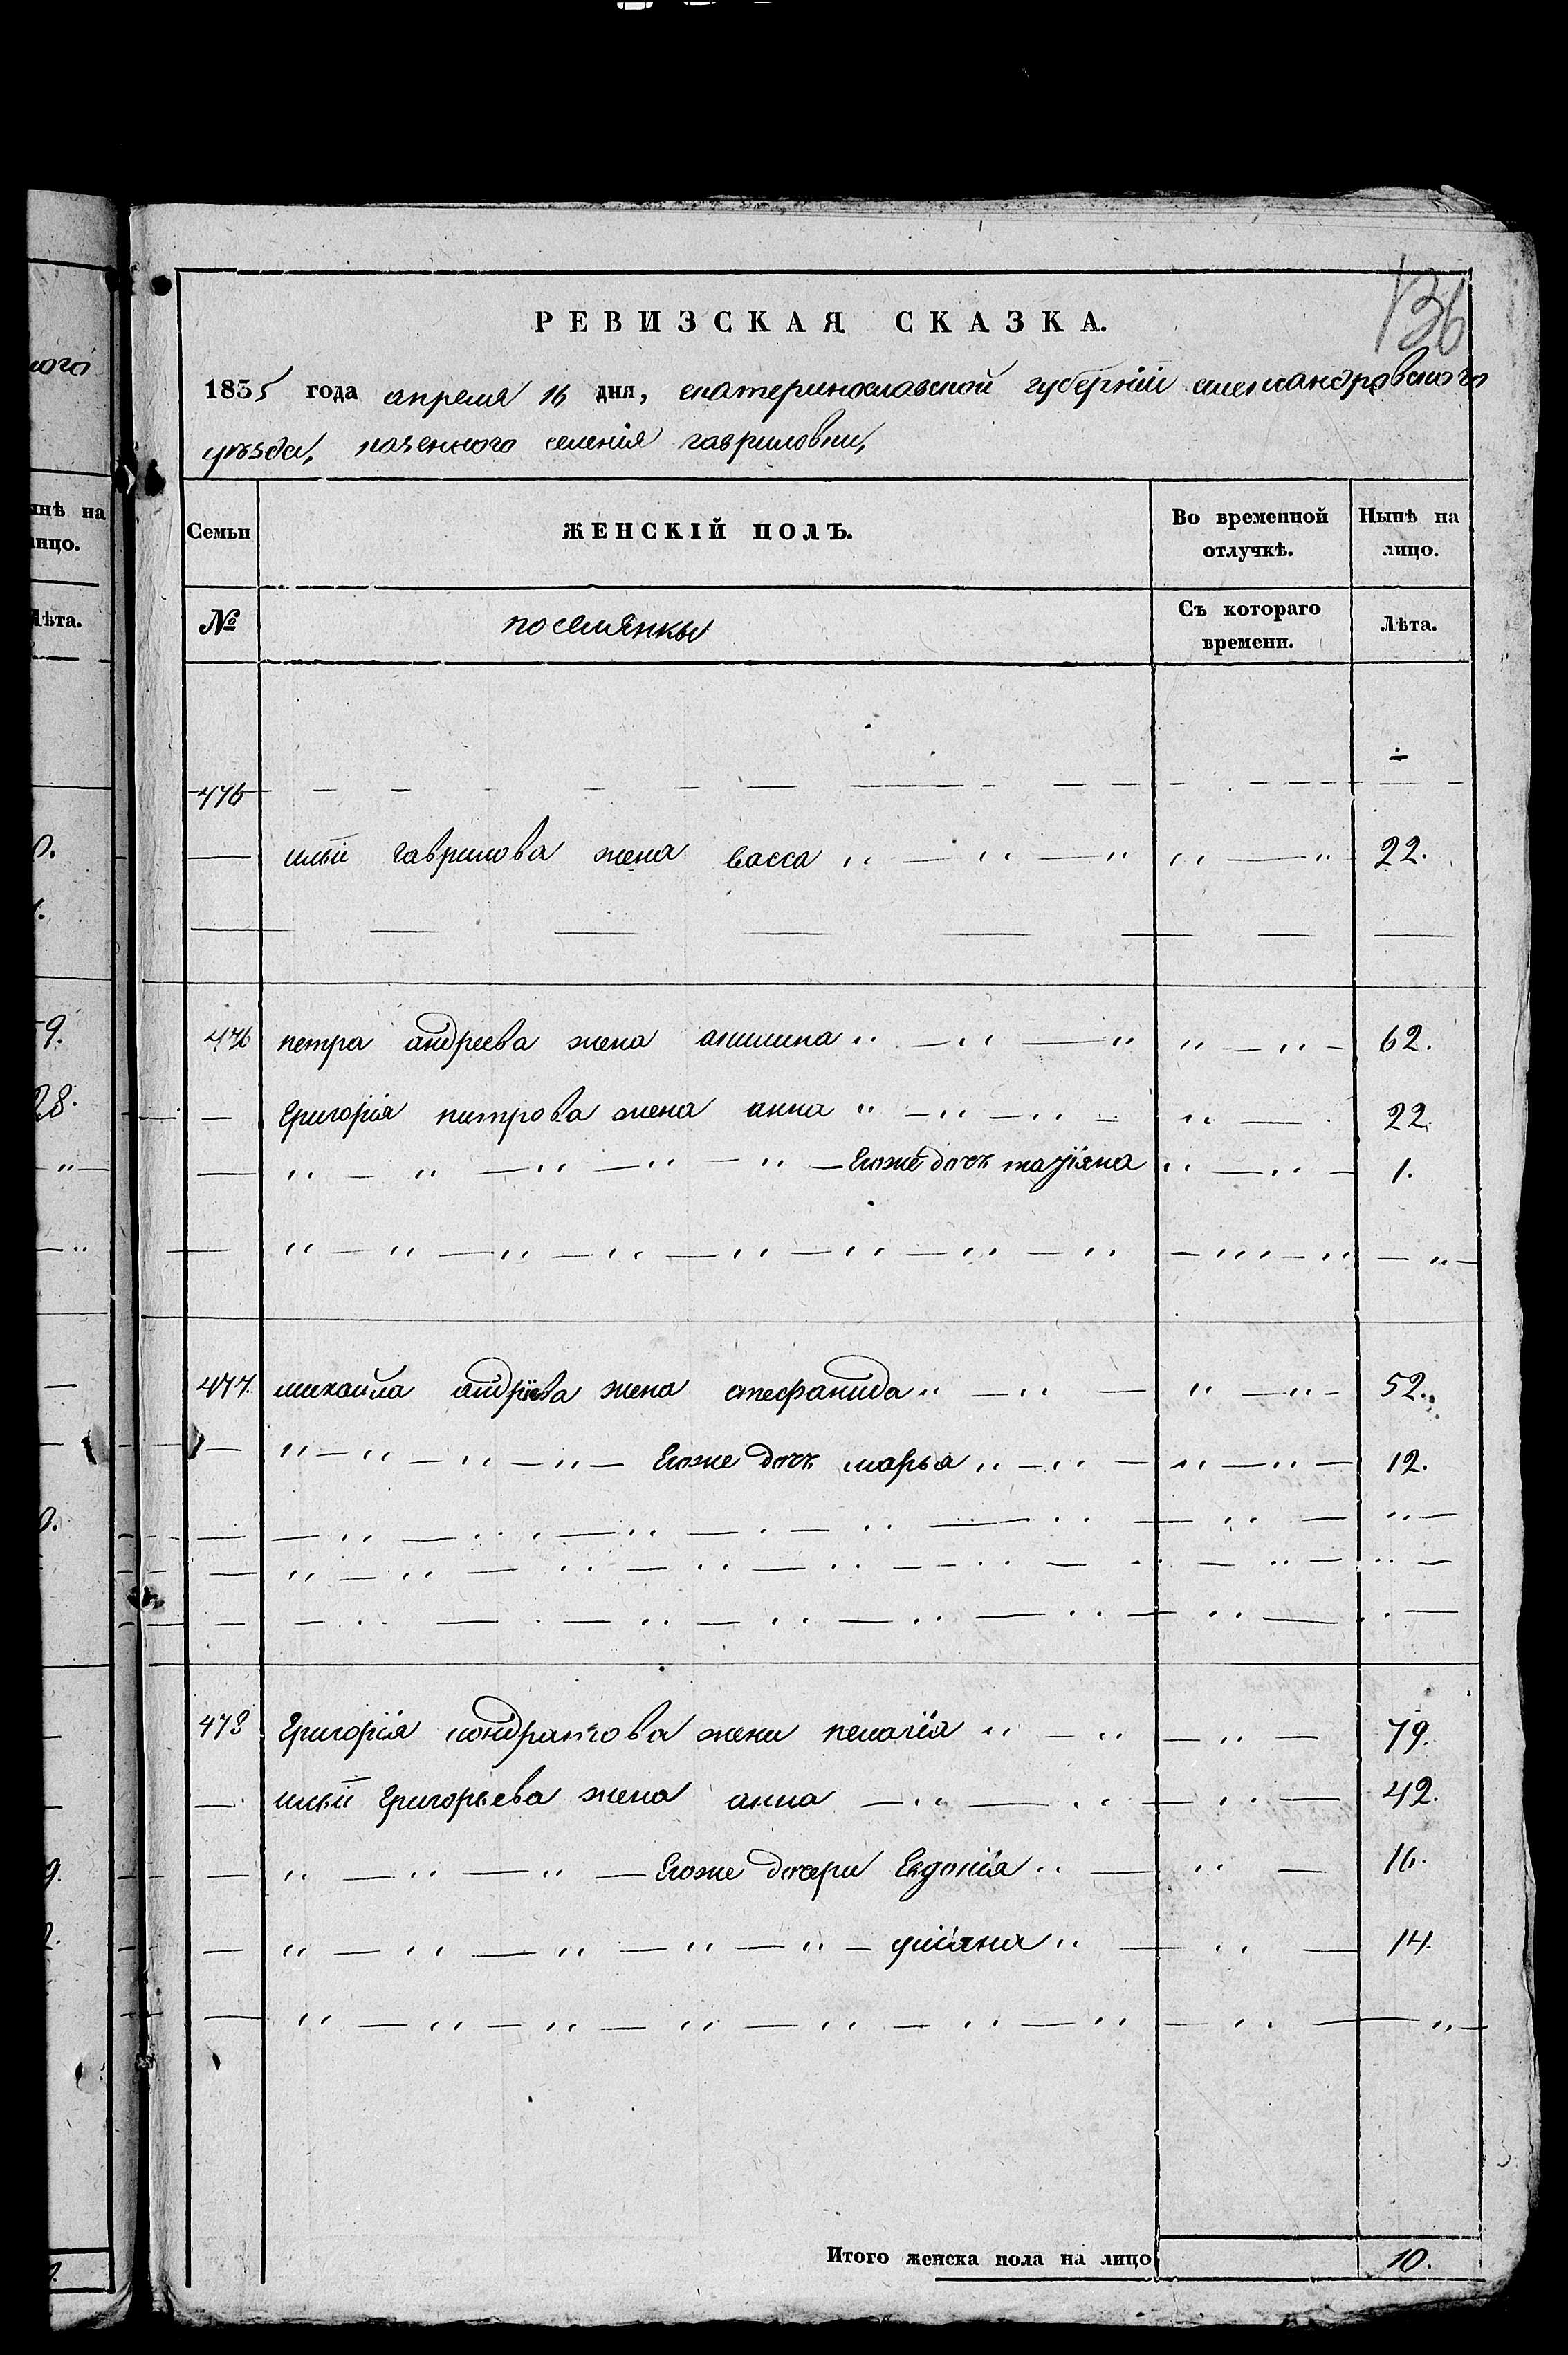 136
РЕВИЗСКАЯ СКАЗКА.
1835 года апреля 16 дня, екатеринославской губернїи александровского
уѣзда, казенного селенія гавриловки,
Семьи ЖЕНСКІЙ ПОЛЪ. Во временной отлучкѣ. Нынѣ на лицо.
№ поселянки Съ котораго времени. Лѣта.
ильи гаврилова жена васса 22.
476 петра андреева жена акилина 62.
григорїя петрова жена анна 22.
Егоже дочь татїяна 1.
477. михайла андрїева жена стефанида 52.
Егоже дочь марья 12.
478 григорїя кондратова жена пелагїя 79.
ильи григорьева жена анна 42.
Егоже дочери Евдокїя 16.
улїяна 14.
Итого женска пола на лицо 10.
ного
ынѣ на
лицо.
Лѣта.
9.
28.